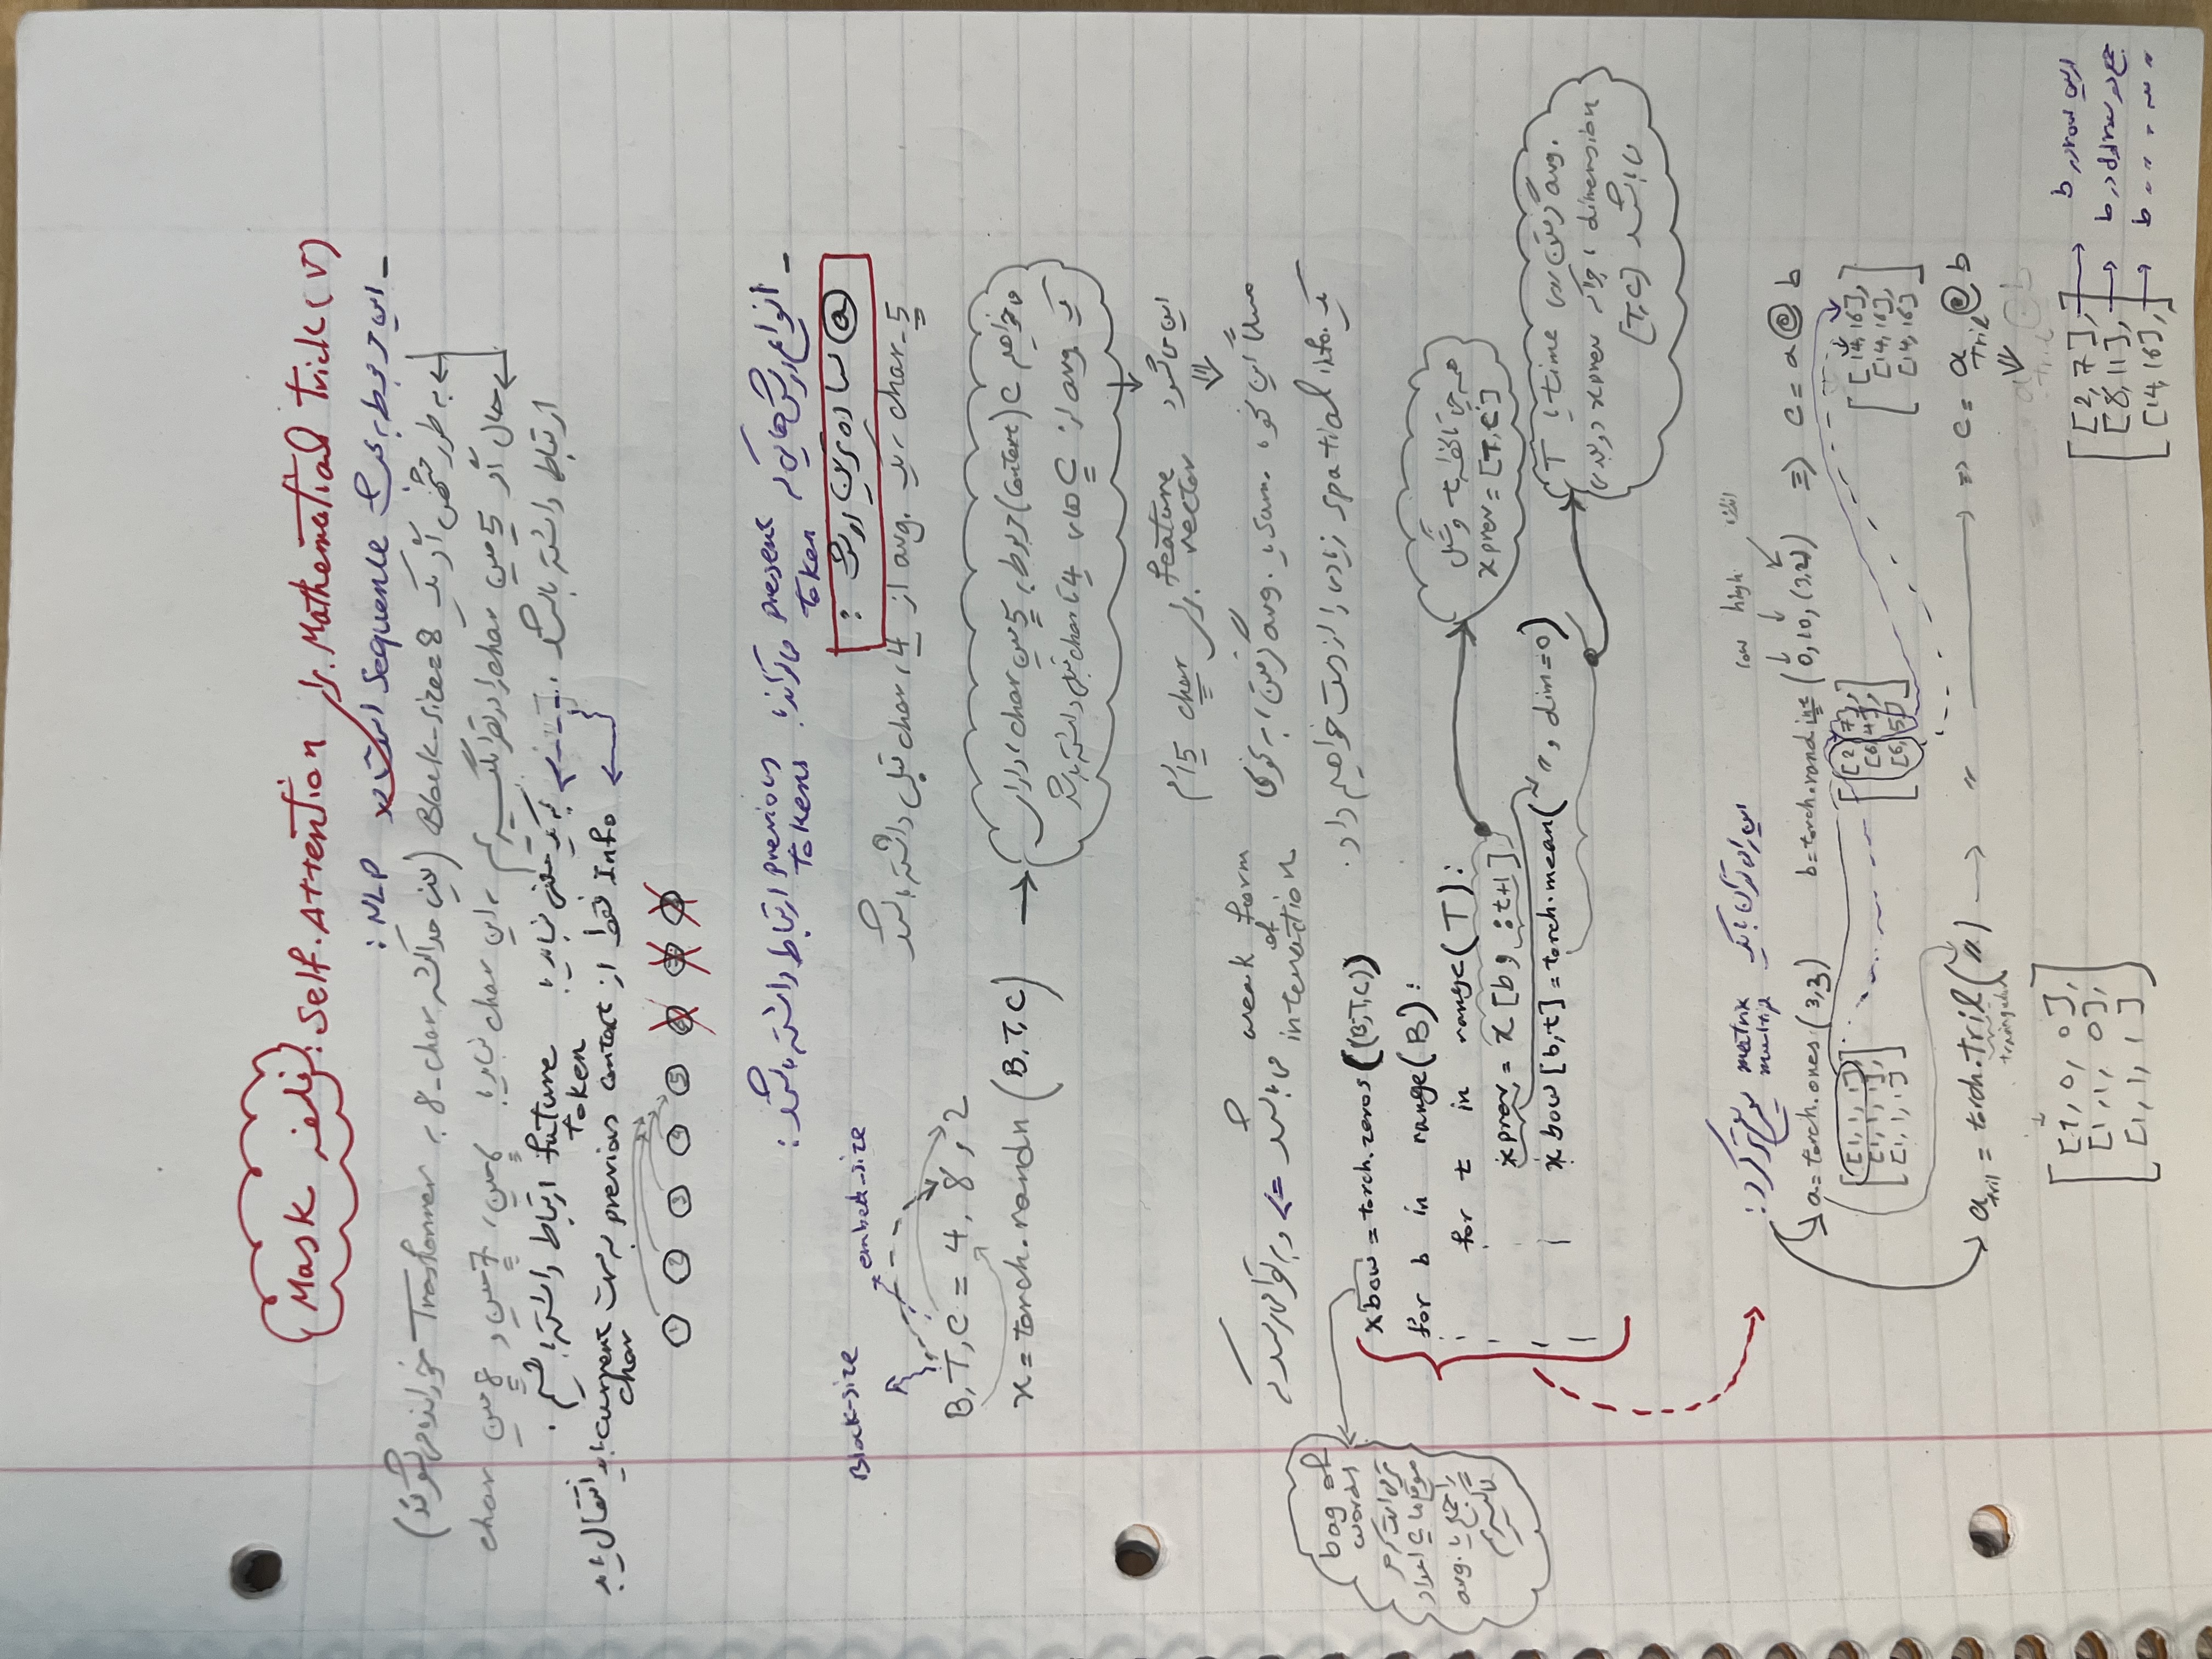 (۷) Mathematical Trick برای Self-Attention: فلسفه Mask
- این مربوط به بحث Sequence است در NLP:
به طور مشخص اگر یک Block-size=8 (یعنی حداکثر 8-char به Transformer خورانده می‌شوند)
حال اگر 5 مین char را در نظر بگیریم، این char نباید با 6 مین، 7 مین و 8 مین char
ارتباط داشته باشد. نباید با future token ارتباط داشته باشیم.
Info فقط از previous context به سمت current char باید انتقال یابد
1 2 3 4 5 6 7 8
- انواع روش‌هایی که present token می‌تواند با previous tokens ارتباط داشته باشد:
(a) ساده ترین روش:
5-char، یک avg. از 4، char قبلی داشته باشد
Block-size
embedd-size
B,T,C = 4, 8, 2
x = torch.randn(B,T,C)
می‌خواهیم C (Context) مربوط به 5 مین char، دارای
یک avg از C های 4 تا char قبلی داشته باشد
این می‌شود feature vector برای char 5 اُم
مسلماً این نحوه sum. یا avg. گرفتن، به نحوی weak form of interaction می‌باشد => و به نظر می‌رسد که
یک spatial info. زیادی را از دست خواهیم داد.
bag of
words
ترمی است که هر
موقع ما اعداد
را جمع یا avg.
می‌گیریم
xbow = torch.zeros((B,T,C))
for b in range(B):
for t in range(T):
xprev = x[b, :t+1]
xbow[b,t] = torch.mean(〃, dim=0)
همه چی تا لحظه t و شکل
xprev = [T,C]
avg. گرفتن روی time یا T
dimension، چرا که xprev دو بعدی
می‌باشد [T,C]
این را می‌توان با یک matrix multip سریع‌تر کرد:
low high اندازه
a = torch.ones(3,3) b = torch.randint(0,10,(3,2)) => c = a @ b
[[1,1,1], [[2,7], [[14,16],
[1,1,1], [6,4], [14,16],
[1,1,1]] [6,5]] [14,16]]
a tril = torch.tril(〃) → 〃 → => c = a tril @ b
[[1,0,0], [[2,7], → اولین row در b
[1,1,0], [8,11], → جمع دو row اول در b
[1,1,1]] [14,16],] → 〃 سه 〃 〃 b